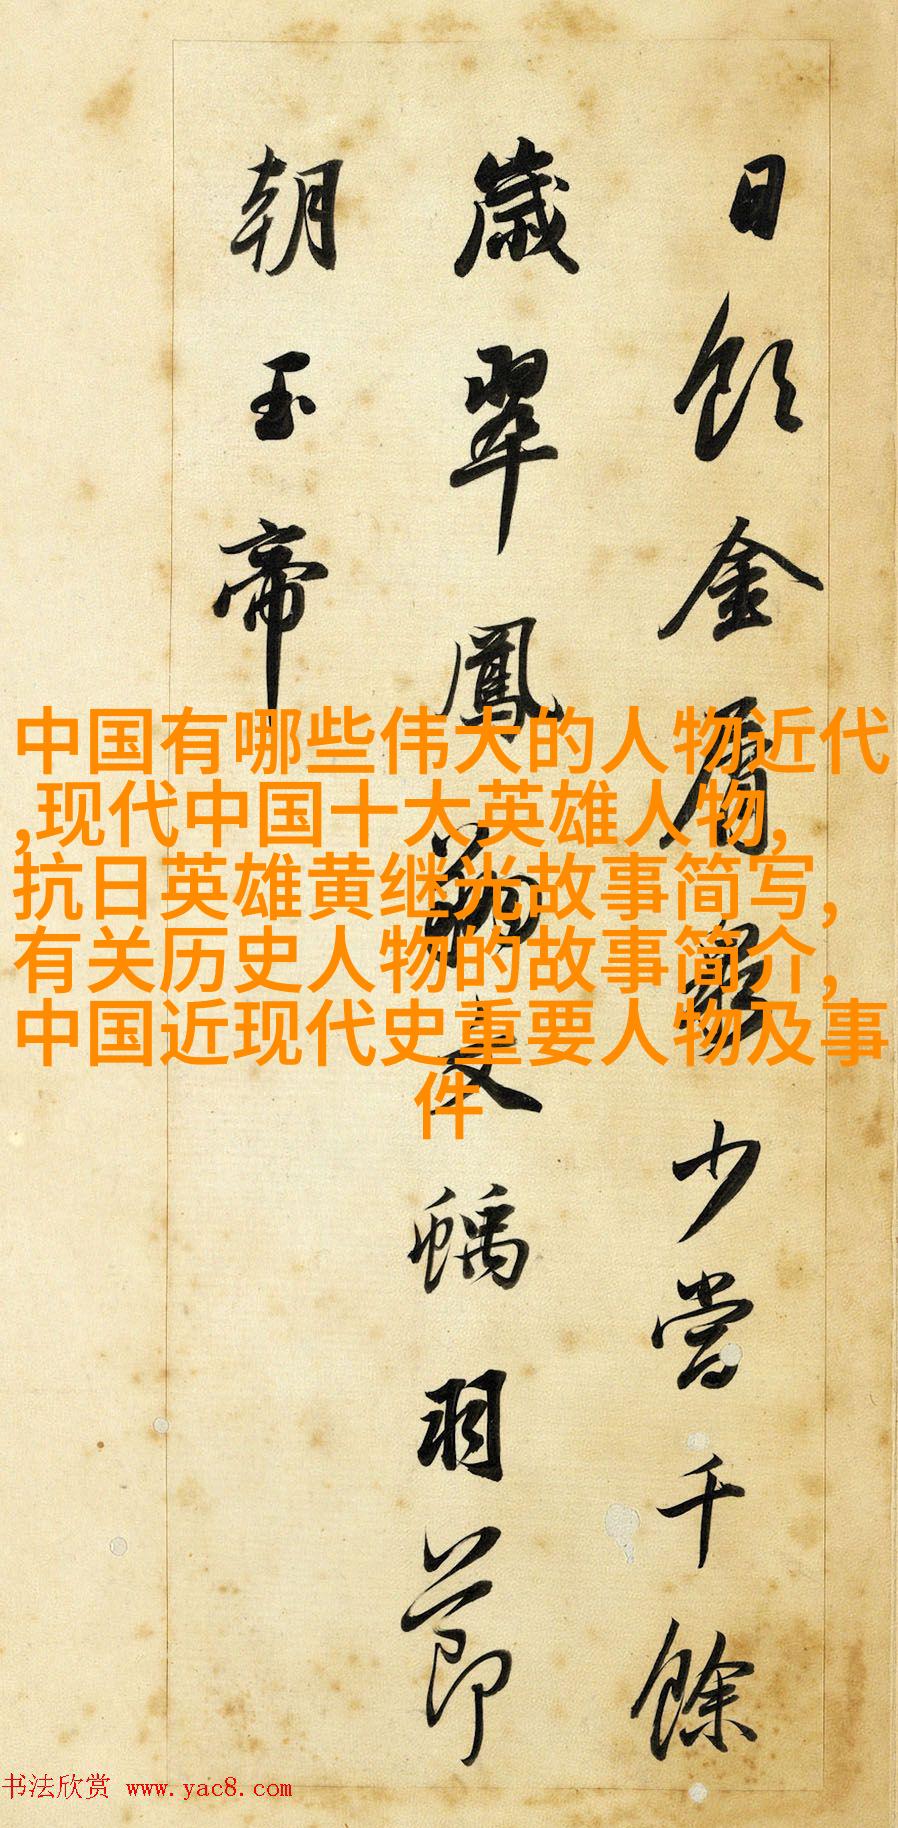 日飲金屑泉少當千餘
歲翠鳳文螭羽節
朝玉帝
中国有哪些伟大的人物近代
,现代中国十大英雄人物,
抗日英雄黄继光故事简写,
有关历史人物的故事简介,
中国近现代史重要人物及事
件
书法欣赏 www.yac8.com